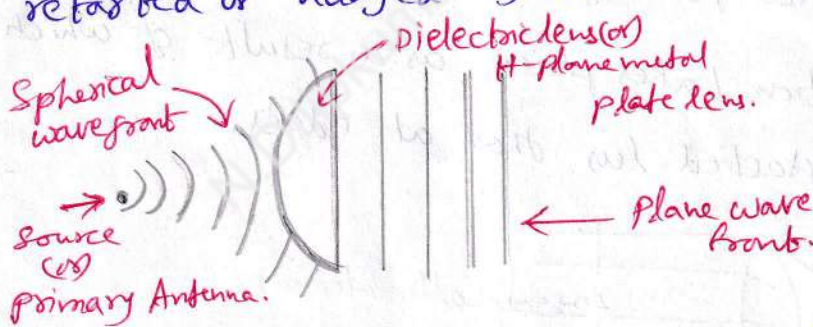 retarded or delayed
Dielectric lens (or)
H-plane metal
plate lens.
Spherical
wavefront
source
(or)
primary Antenna.
plane wave
front.